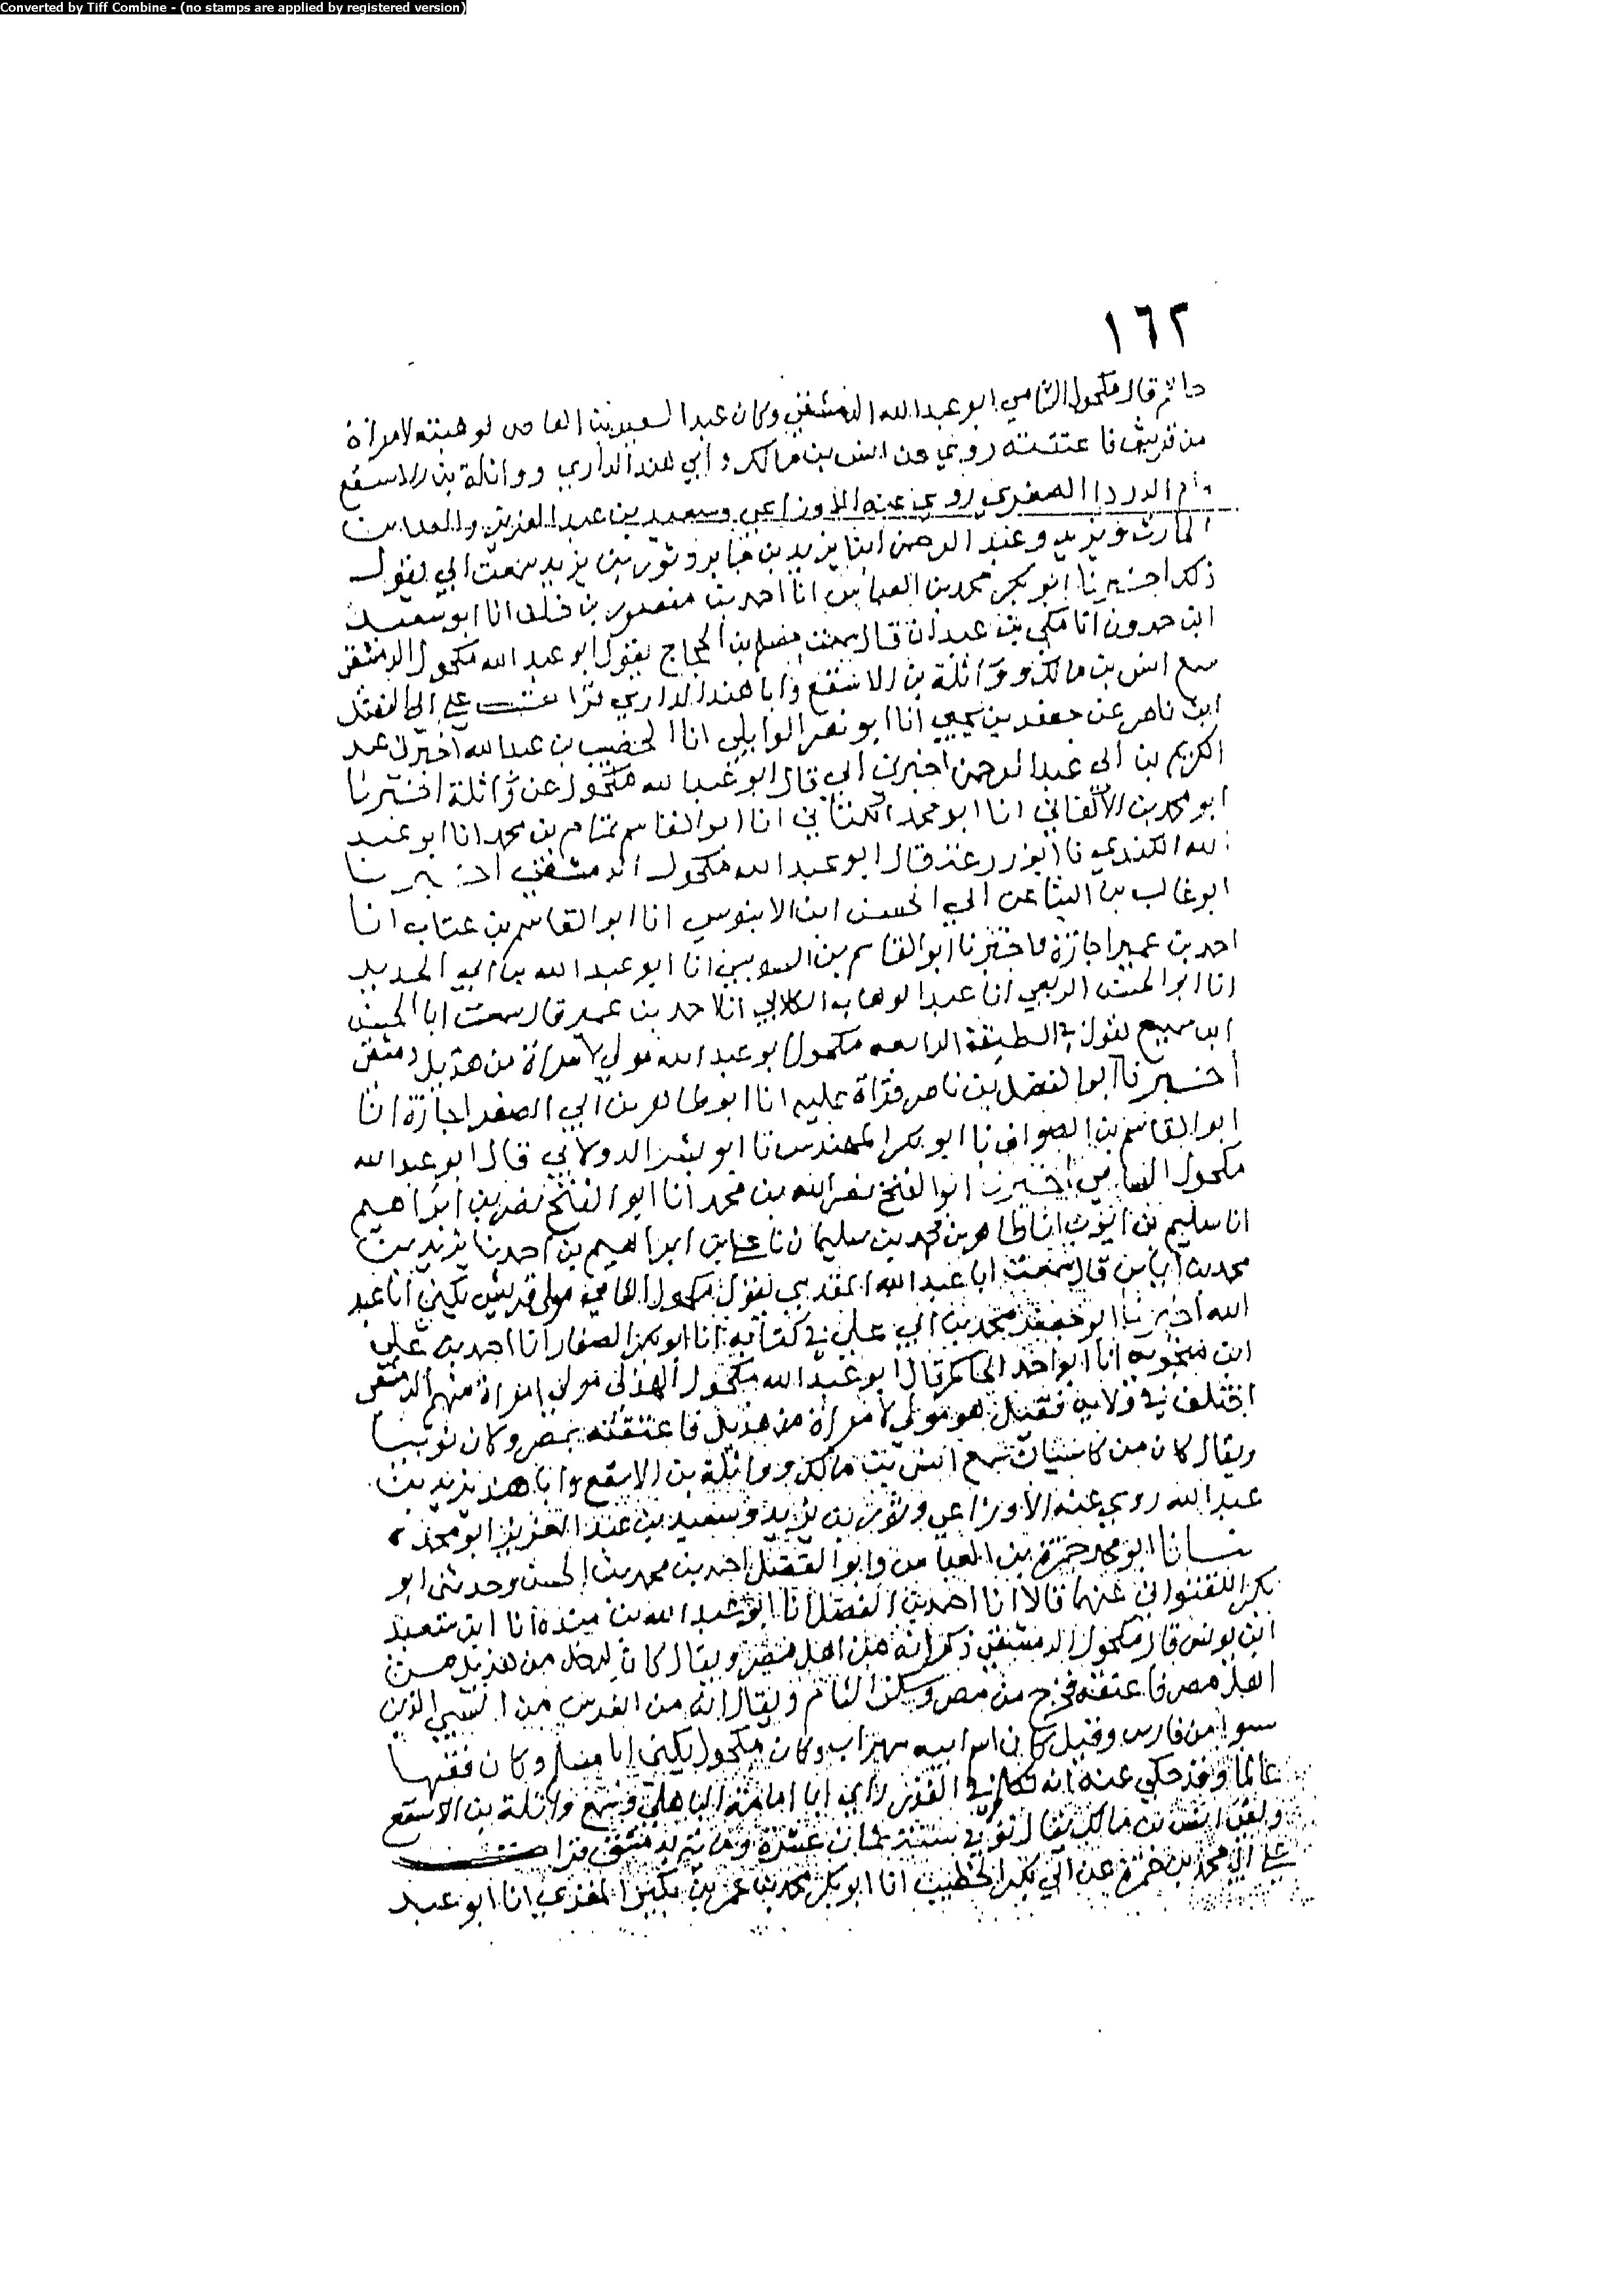 Converted by Tiff Combine - (no stamps are applied by registered version)
١٦٢
حاتم قال مكحول الشامي ابو عبد الله الدمشقي وكان عبدا لسعيد بن العاص فوهبته لامراة
من قريش فاعتقته روى عن انس بن مالك وابي هند الداري وواثلة بن الاسقع
وام الدردا الصغرى روى عنه الاوزاعي وسعيد بن عبد العزيز والعلا بن
الحارث ويزيد وعبد الرحمن ابنا يزيد بن جابر وثور بن يزيد سمعت ابي يقول
ذلك اخبرنا ابو بكر محمد بن العباس انا احمد بن منصور بن خلف انا ابو سعيد
ابن حمدون انا مكي بن عبدان قال سمعت مسلم بن الحجاج يقول ابو عبد الله مكحول الدمشقي
سمع انس بن مالك وواثلة بن الاسقع وابا هند الداري قرات على ابي الفضل
ابن ناصر عن جعفر بن يحيى انا ابو نصر الوايلي انا الخصيب بن عبد الله اخبرني عبد
الكريم بن ابي عبد الرحمن اخبرني ابي قال ابو عبد الله مكحول عن واثلة اخبرنا
ابو محمد بن الاكفاني انا ابو محمد الكتاني انا ابو القاسم تمام بن محمد انا ابو عبد
الله الكندي نا ابو زرعة قال ابو عبد الله مكحول الدمشقي اخبرنا
ابو غالب بن البنا عن ابي الحسن ابن الابنوسي انا ابو القاسم بن عتاب انا
احمد بن عمير اجازة واخبرنا ابو القاسم بن السوسي انا ابو عبد الله بن ابي الحديد
انا ابو الحسن الربعي انا عبد الوهاب الكلابي انا احمد بن عمير قال سمعت ابا الحسن
ابن سميع يقول في الطبقة الرابعه مكحول ابو عبد الله مولى لامراة من هذيل دمشقي
اخبرنا ابو الفضل بن ناصر قراة عليه انا ابو طاهر بن ابي الصقر اجازة انا
ابو القاسم بن الصواف نا ابو بكر المهندس نا ابو بشر الدولابي قال ابو عبد الله
مكحول الشامي اخبرنا ابو الفتح نصر الله بن محمد انا ابو الفتح نصر بن ابراهيم
انا سليم بن ايوب انا طاهر بن محمد بن سليمان نا علي بن ابراهيم بن احمد نا يزيد بن
محمد بن اياس قال سمعت ابا عبد الله المقدمي يقول مكحول الشامي مولى قريش يكنى ابا عبد
الله اخبرنا ابو جعفر محمد بن ابي علي في كتابه انا ابو بكر الصفار انا احمد بن علي
ابن منجويه انا ابو احمد الحاكم قال ابو عبد الله مكحول الهذلي مولى امراة منهم الدمشقي
اختلف في ولايه فقيل هو مولى لامراة من هذيل فاعتقته بمصر وكان نوبيا
ويقال كان من سمع انس بن مالك وواثلة بن الاسقع وابا هند يزيد بن
عبد الله روى عنه الاوزاعي وثور بن يزيد وسعيد بن عبد العزيز ابو محمد
انا ابو محمد حمزة بن العباس وابو الفضل احمد بن محمد بن الحسن وحدثني ابو
بكر اللفتواني عنهما قالا انا احمد بن الفضل انا ابو عبد الله بن مندة انا ابو سعيد
ابن يونس قال مكحول الدمشقي ذكر انه من اهل مصر ويقال كان لرجل من هذيل من
اهل مصر فاعتقه فخرج من مصر وسكن الشام ويقال انه من الفرس من السبي الذين
سبوا من فارس وقيل كان اسم ابيه سهراب وكان مكحول يكنى ابا مسلم وكان فقيها
عالما وقد حكي عنه انه تكلم في القدر راى ابا امامة الباهلي وسمع واثلة بن الاسقع
ولقي انس بن مالك يقال توفي سنة ثمان عشرة وماية بدمشق قرات
على ابي محمد بن حمزة عن ابي بكر الخطيب انا ابو بكر محمد بن عمر بن بكير المقري انا ابو عبد